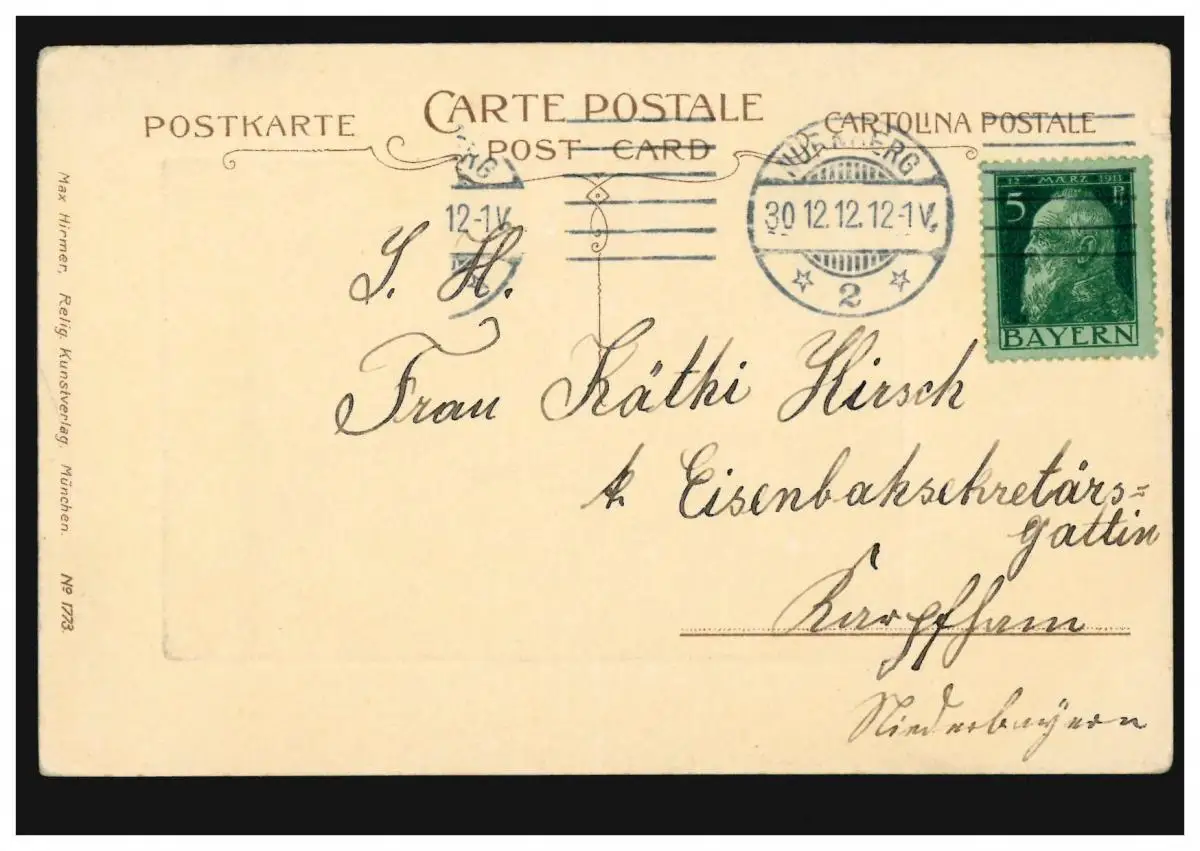 POSTKARTE
CARTE POSTALE
POST CARD
CARTOLINA POSTALE
RG
12-1V.
NÜRNBERG
30 12.12.12-1V.
2
12 MÄRZ 1911
5 Pf
BAYERN
S. H.
Frau Käthi Hirsch
k. Eisenbahsekretärs=
gattin
Karpfham
Niederbayern
Max Hirmer, Relig. Kunstverlag. München. Nº 1773.